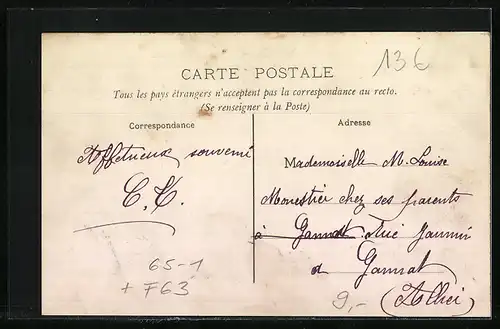 13€
CARTE POSTALE
Tous les pays étrangers n'acceptent pas la correspondance au recto.
(Se renseigner à la Poste)
Correspondance
Adresse
Affectueux souvenir
C. C.
Mademoiselle M. Louise
Monestier chez ses parents
à Gannat Rue
à Gannat
(Allier)
65-1
+ F63
9,-